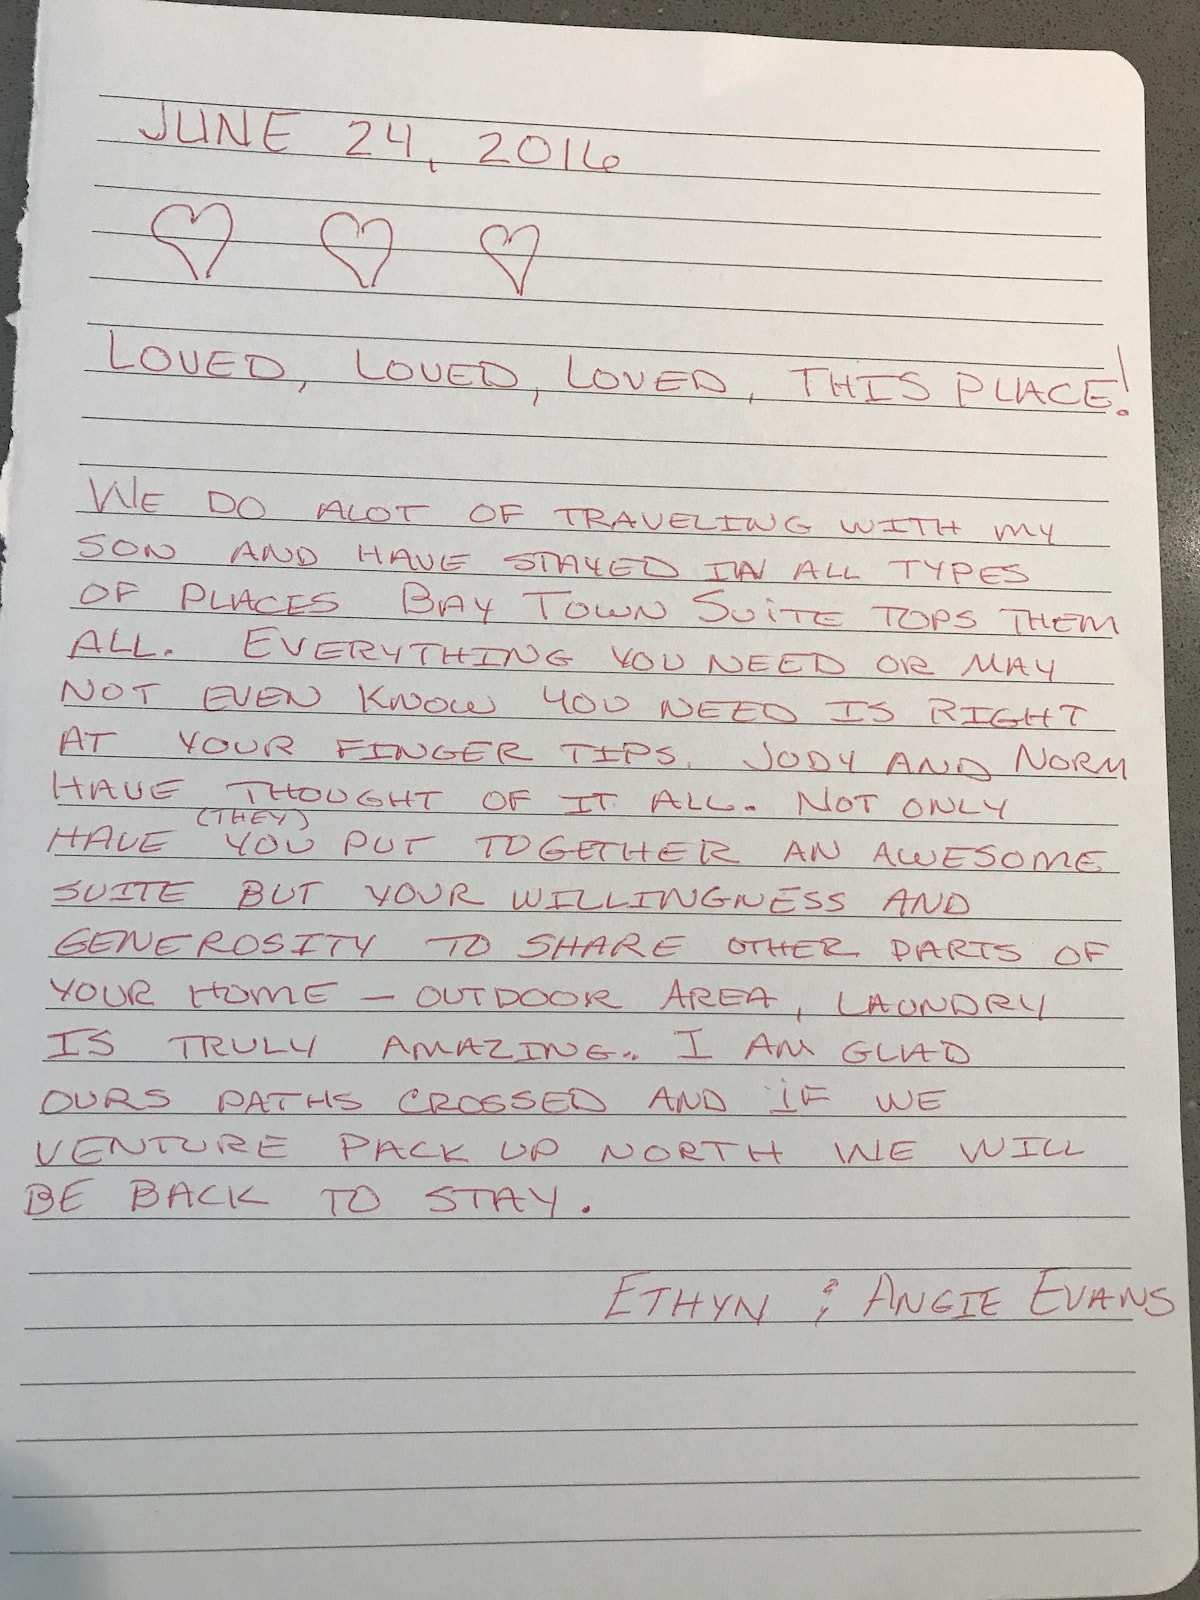 JUNE 24, 2016
LOVED, LOVED, LOVED, THIS PLACE!
WE DO ALOT OF TRAVELING WITH MY
SON AND HAVE STAYED IN ALL TYPES
OF PLACES BAY TOWN SUITE TOPS THEM
ALL. EVERYTHING YOU NEED OR MAY
NOT EVEN KNOW YOU NEED IS RIGHT
AT YOUR FINGER TIPS. JODY AND NORM
HAVE THOUGHT OF IT ALL. NOT ONLY
(THEY)
HAVE YOU PUT TOGETHER AN AWESOME
SUITE BUT YOUR WILLINGNESS AND
GENEROSITY TO SHARE OTHER PARTS OF
YOUR HOME - OUTDOOR AREA, LAUNDRY
IS TRULY AMAZING.. I AM GLAD
OURS PATHS CROSSED AND IF WE
VENTURE PACK UP NORTH WE WILL
BE BACK TO STAY.
ETHYN & ANGIE EVANS